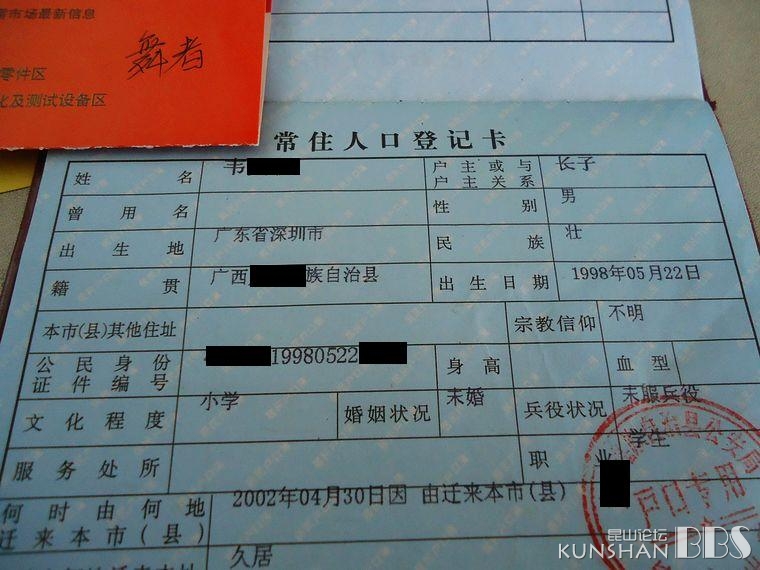 市场最新信息
零件区
化及测试设备区
舞者
常住人口登记卡
姓名 韦 户主或与户主关系 长子
曾用名 性别 男
出生地 广东省深圳市 民族 壮
籍贯 广西 族自治县 出生日期 1998年05月22日
本市(县)其他住址 宗教信仰 不明
公民身份证件编号 19980522 身高 血型
文化程度 小学 婚姻状况 未婚 兵役状况 未服兵役
服务处所 职业 学生
何时由何地迁来本市(县) 2002年04月30日因 由迁来本市(县)
久居
治县公安局
户口专用
昆山论坛
KUNSHAN BBS